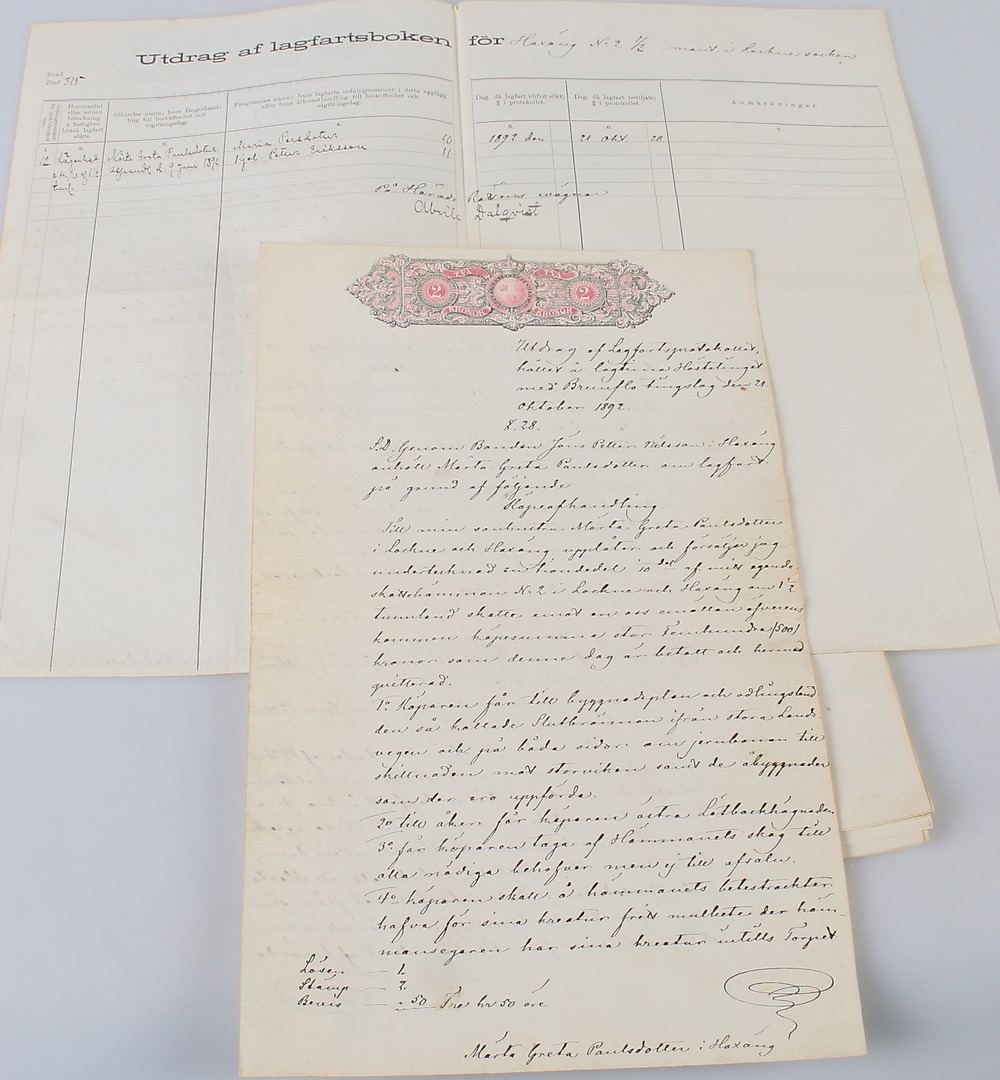 Utdrag af lagfartsboken för Haxäng No 2. 1/2 mant. i Lockne socken
Sid 315
Hemmantal eller annan beteckning å fastighet, hvarå lagfart sökts.
Sökandes namn; hans fångeshandling till beskaffenhet och utgifningsdag.
Fångesmans namn; hans lagfarts ordningsnummer i detta upplägg eller hans åtkomsthandling till beskaffenhet och utgifningsdag.
Dag, då lagfart blifvit sökt; § i protokollet.
Dag, då lagfart beviljats; § i protokollet.
Anmärkningar.
12 Lägenhet Märta Greta Paulsdotter Maria Persdotter 10 1892 den 21 Okt. 28
afhandl. d. 9 Juni 1892 Peter Eriksson 11
På Härads Rättens vägnar
Dalqvist
TVÅ TVÅ
2 2
KRONOR KRONOR
Utdrag af Lagfartsprotokollet,
hållet å lagtima Hösttinget
med Brunflo tingslag den 21
Oktober 1892.
§. 28.
S.D. Genom Bonden Jöns Petter Nilsson i Haxäng
anhöll Märta Greta Paulsdotter om lagfart
på grund af följande
Köpeafhandling
Till min sonhustru Märta Greta Paulsdotter
i Lockne och Haxäng upplåter och försäljer jag
undertecknad en tiondedel 1/10 del af mitt egande
skattehemman No 2 i Lockne och Haxäng om 1 1/2
tunnland skatte emot en oss emellan öfverens
kommen köpesumma stor Femhundra (500)
kronor som denne dag är betalt och hermed
quitterad.
1o Köparen får till byggnadsplan och odlingsland
den så kallade Slutbrännan ifrån stora Lands-
vegen och på båda sidor om jernbanan till
skillnaden mot storviken samt de åbyggnader
som der ero uppförda.
2o till åker får köparen östra Lötbackhägnaden
3o får köparen taga af Hemmanets skog till
alla nödiga behofver men ej till afsalu.
4o köparen skall å hemmanets betestrackter
hafva för sina kreatur fritt mulbete der hem-
mansegaren har sina kreatur intills Torpet
Lösen — 1.
Stämp — 2.
Bevis — "50 Tre kr 50 öre
Märta Greta Paulsdotter i Haxäng